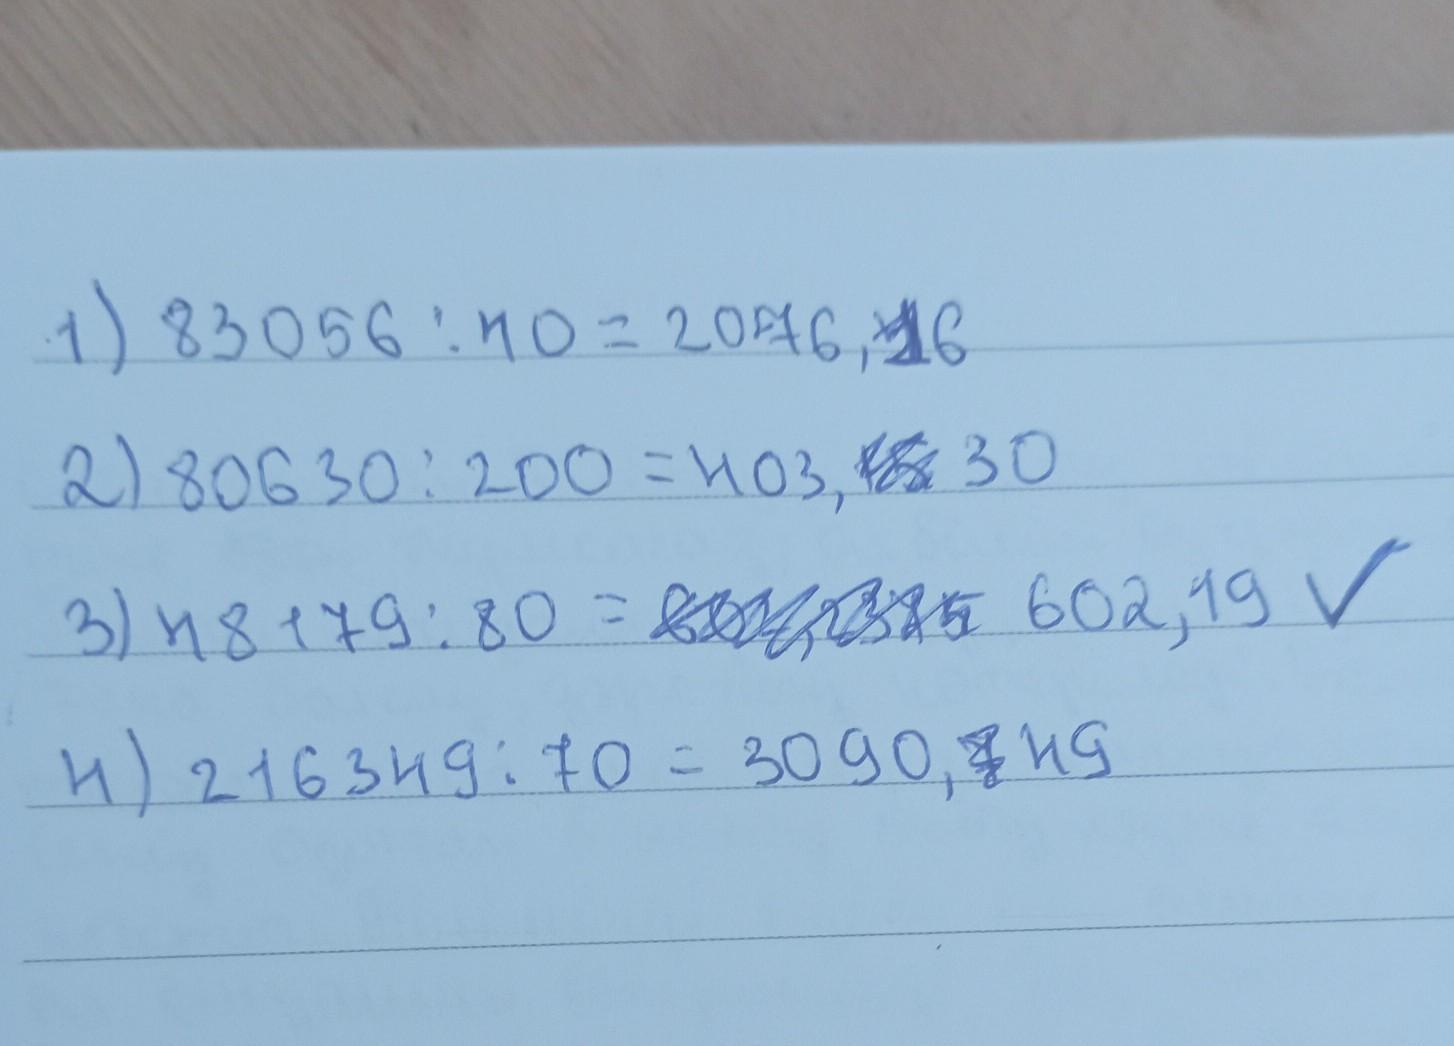 1) 83056 : 40 = 2076,16
2) 80630 : 200 = 403,30
3) 48179 : 80 = 602,19 ✓
4) 216349 : 70 = 3090,49